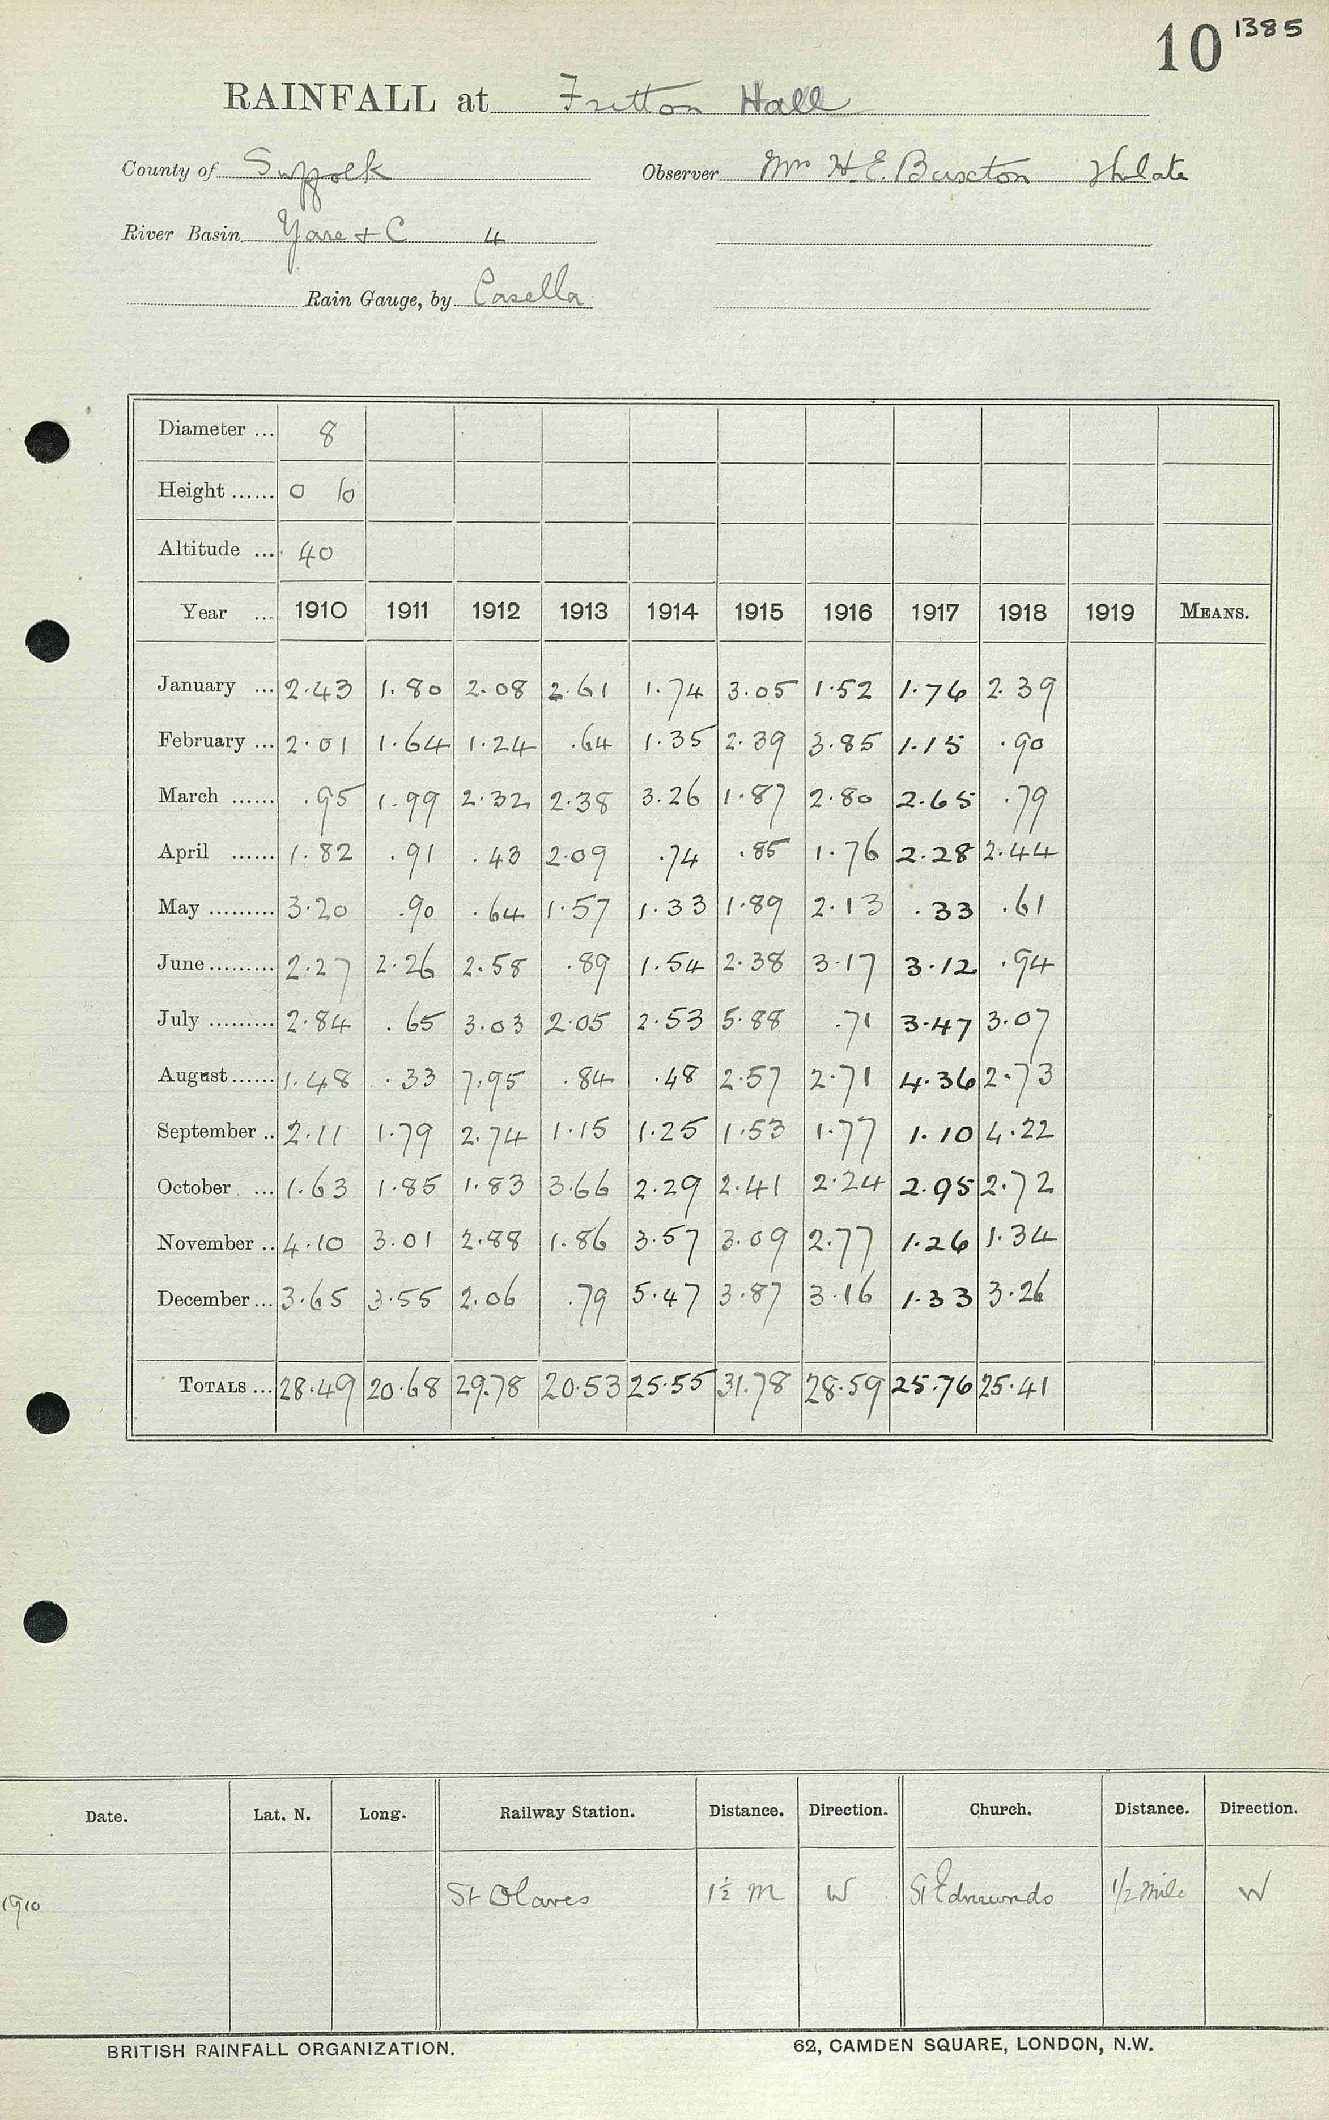 10 1385
RAINFALL at Fritton Hall
County of Suffolk Observer Mrs H. E. Buxton The late
River Basin Yare + C 4
Rain Gauge, by Casella
Diameter ... 8
Height ...... 0 10
Altitude ... 40
Year ... 1910 1911 1912 1913 1914 1915 1916 1917 1918 1919 MEANS.
January ... 2.43 1.80 2.08 2.61 1.74 3.05 1.52 1.76 2.39
February ... 2.01 1.64 1.24 .64 1.35 2.39 3.85 1.15 .90
March ...... .95 1.99 2.32 2.38 3.26 1.87 2.80 2.65 .79
April ...... 1.82 .91 .43 2.09 .74 .85 1.76 2.28 2.44
May ......... 3.20 .90 .64 1.57 1.33 1.89 2.13 .33 .61
June ......... 2.27 2.26 2.58 .89 1.54 2.38 3.17 3.12 .94
July ......... 2.84 .65 3.03 2.05 2.53 5.88 .71 3.47 3.07
August ...... 1.48 .33 7.95 .84 .48 2.57 2.71 4.36 2.73
September .. 2.11 1.79 2.74 1.15 1.25 1.53 1.77 1.10 4.22
October ... 1.63 1.85 1.83 3.66 2.29 2.41 2.24 2.95 2.72
November .. 4.10 3.01 2.88 1.86 3.57 3.09 2.77 1.26 1.34
December ... 3.65 3.55 2.06 .79 5.47 3.87 3.16 1.33 3.26
TOTALS ... 28.49 20.68 29.78 20.53 25.55 31.78 28.59 25.76 25.41
Date. Lat. N. Long. Railway Station. Distance. Direction. Church. Distance. Direction.
1910 St Olaves 1½ m W St Edmunds 1/2 Mile W
BRITISH RAINFALL ORGANIZATION. 62, CAMDEN SQUARE, LONDON, N.W.